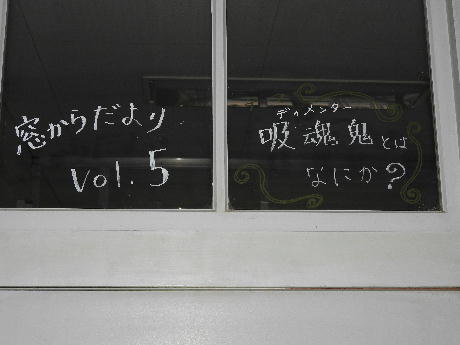 窓からだより
vol.5
ディメンター
吸魂鬼とは
なにか?